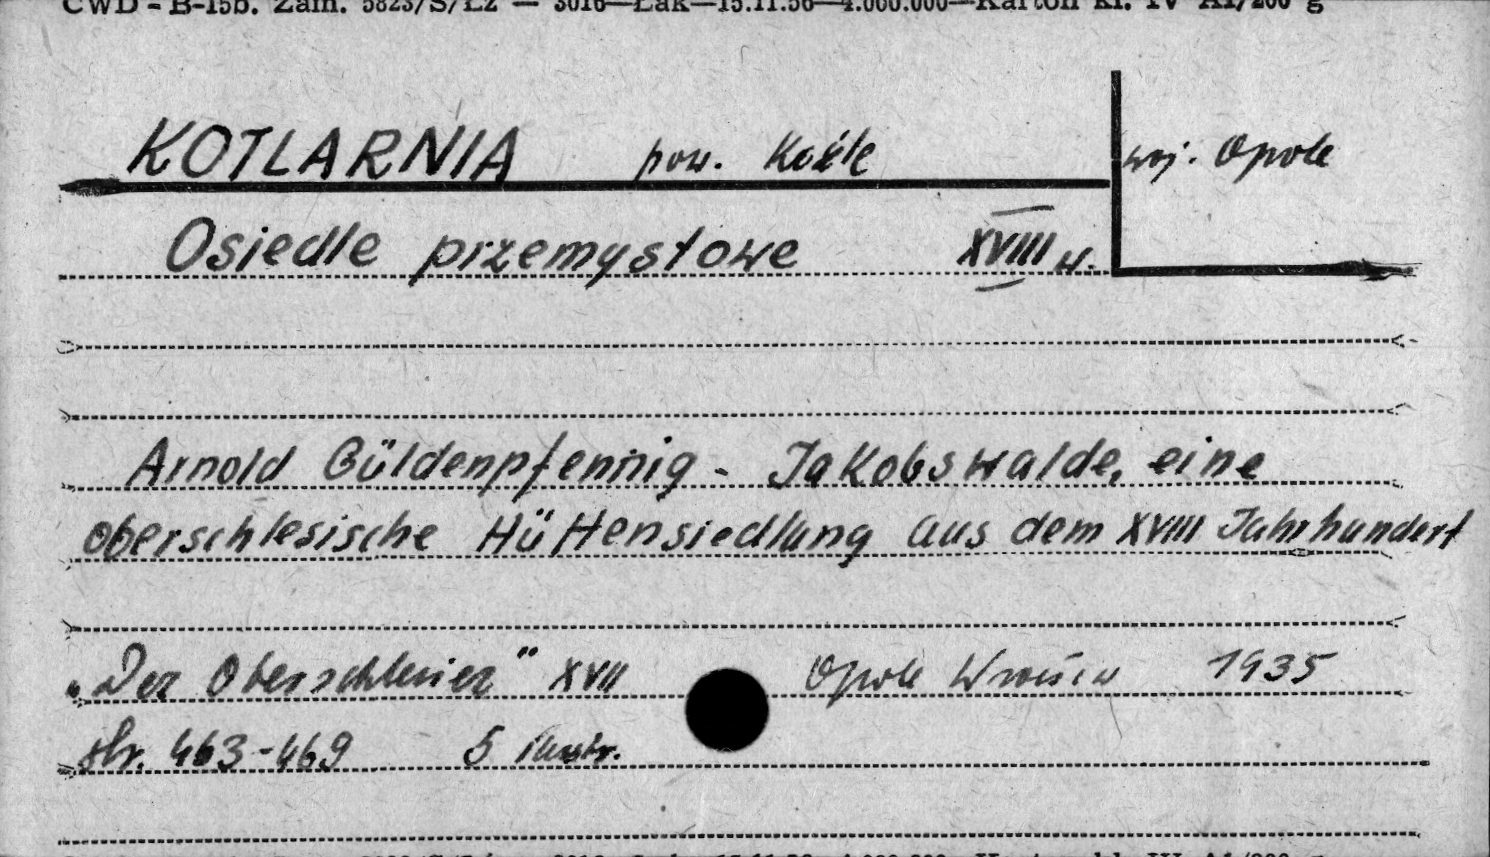 CWD - B-15b. Zam. 5823/S/Łz — 3016—Łak—15.11.56—4.000.000—Karton kl. IV A1/200 g
KOTLARNIA pow. Koźle woj. Opole
Osiedle przemysłowe XVIII w.
Arnold Güldenpfennig - Jakobswalde, eine
oberschlesische Hüttensiedlung aus dem XVIII Jahrhundert
„Der Oberschlesier" XVII Opole Wrzesień 1935
str. 463-469 5 ilustr.